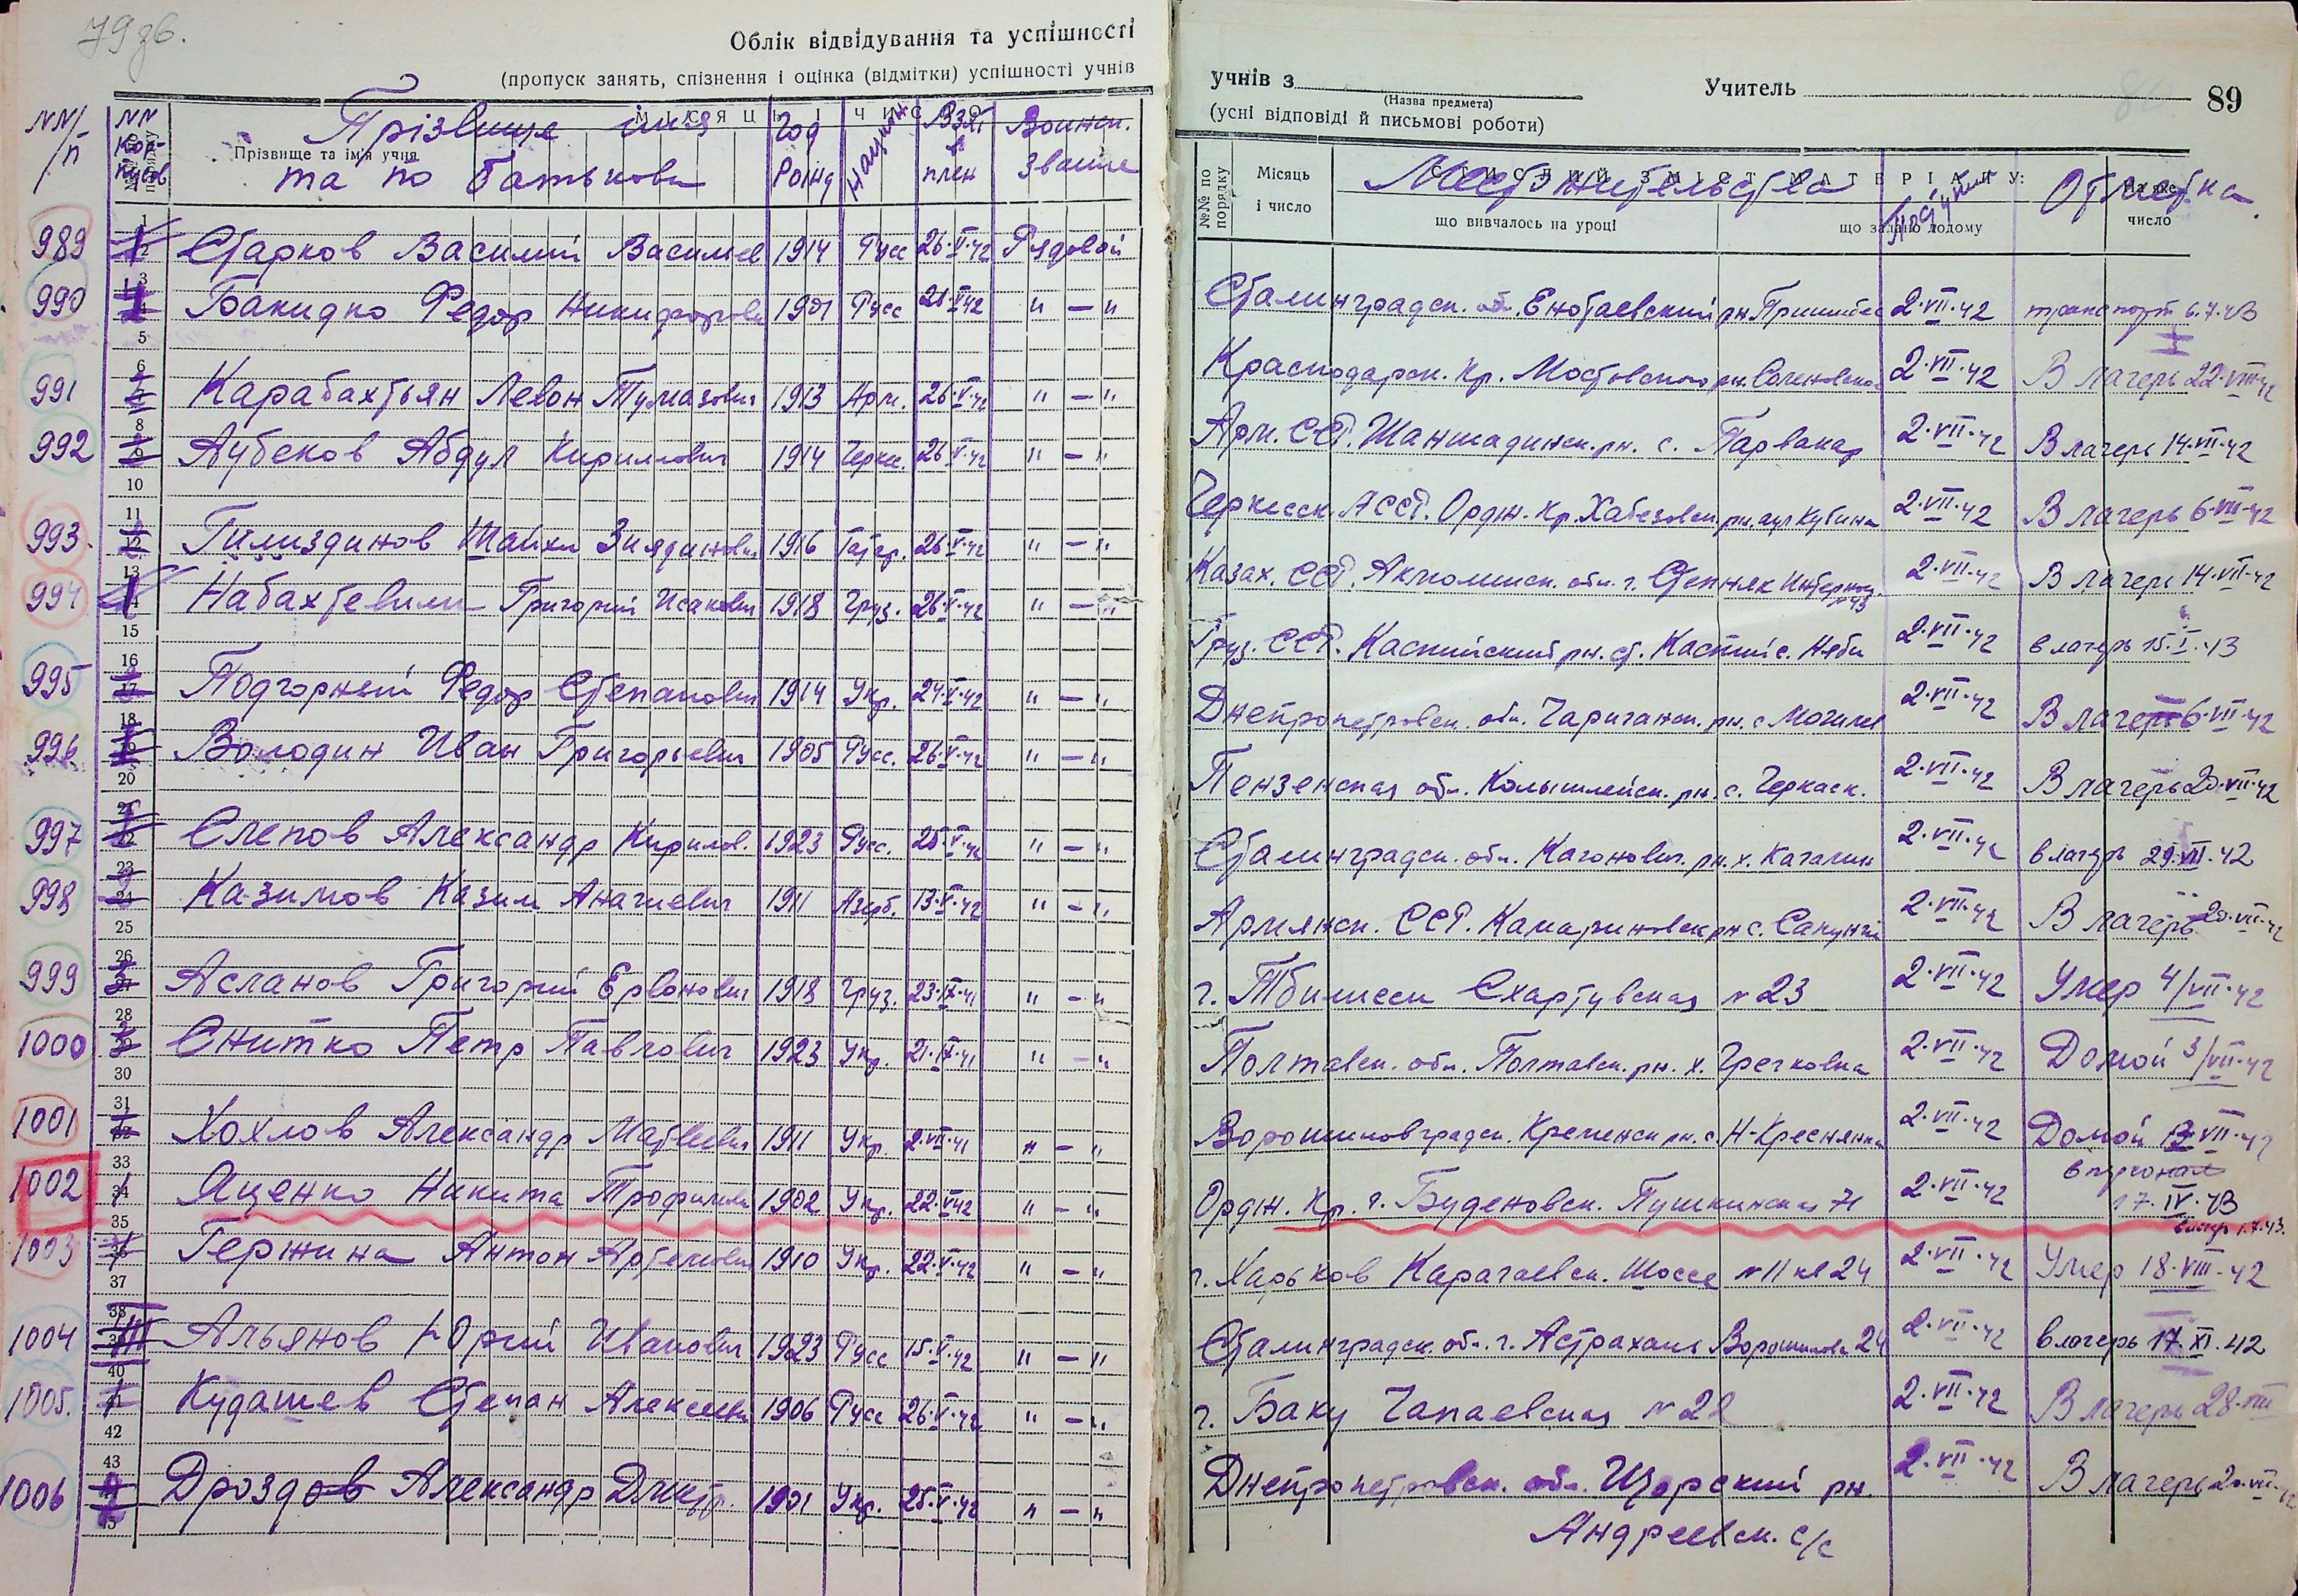 79 зв.
Облік відвідування та успішності
(пропуск занять, спізнення і оцінка (відмітки) успішності учнів
NN/п NN Кор-пусов Прізвище имя Год Национ. Взят Воинск.
Прізвище та ім'я учня
та по батькови Рожд в плен звание
989 Старков Василий Василиев 1914 Русс 26·V·42 Рядовой
990 Бакидко Федор Никифоров 1901 Русс 21·V·42 " — "
991 Карабахтьян Левон Тумазович 1913 Арм. 26·V·42 " — "
992 Аубеков Абдул Киримович 1914 Черке. 26·V·42 " — "
993 Гилиздинов Шайхи Зиядинович 1916 Татар. 26·V·42 " — "
994 Набахтевили Григорий Исакович 1918 Груз. 26·V·42 " — "
995 Подгорный Федор Степанович 1914 Укр. 24·V·42 " — "
996 Володин Иван Григорьевич 1905 Русс. 26·V·42 " — "
997 Слепов Александр Кирилов. 1923 Русс. 25·V·42 " — "
998 Казимов Казим Анагиевич 1911 Азерб. 13·V·42 " — "
999 Асланов Григорий Ервонович 1918 Груз. 23·IX·41 " — "
1000 Снитко Петр Павлович 1923 Укр. 21·IX·41 " — "
1001 Хохлов Александр Матвеевич 1911 Укр. 2·VII·41 " — "
1002 Яценко Никита Трофимов 1902 Укр. 22·V·42 " — "
1003 Гержина Антон Артемович 1910 Укр. 22·V·42 " — "
1004 Альянов Юрий Иванович 1923 Русс 15·V·42 " — "
1005. Кудашев Степан Алексеев 1906 Русс 26·V·42 " — "
1006 Дроздов Александр Дмитр. 1901 Укр. 25·V·42 " — "
учнів з Учитель 89
(Назва предмета)
(усні відповіді й письмові роботи)
№№ по порядку Місяць і число СТИСЛИЙ ЗМІСТ МАТЕРІАЛУ: На яке число
Место жительства Поступил Отметка
що вивчалось на уроці що задано додому
Сталинградск. об. Енотаевский рн Пришиб 2·VII·42 транспорт 6.7.43
Краснодарск. Кр. Мостовского рн. 2·VII·42 В лагерь 22·VIII·42
Арм. ССР. Шаншадинск. рн. с. Парвакар 2·VII·42 В лагерь 14·VII·42
Черкесск. АССР. Ордж. Кр. Хабезовск. рн. аул Кубина 2·VII·42 В лагерь 6·VIII·42
Казах. ССР. Акмолинск. обл. г. Степняк Интернац. №43 2·VII·42 В лагерь 14·VII·42
Груз. ССР. Каспийский рн. ст. Каспий с. Няби 2·VII·42 в лагерь 15·I·43
Днепропетровск. обл. Царичанск. рн. с Могилев 2·VII·42 В лагерь 6·VII·42
Пензенская обл. Колышлейск. рн. с. Черкаск. 2·VII·42 В лагерь 20·VII·42
Сталинградск. обл. Каганович. рн. х. Качалин 2·VII·42 в лагерь 29·VII·42
Армянск. ССР. Камариновск рн с. 2·VII·42 В лагерь 20·VII·42
г. Тбилисси Схартувская №23 2·VII·42 Умер 4/VII·42
Полтавск. обл. Полтавск. рн. х. Гречковка 2·VII·42 Домой 3/VII·42
Ворошиловградск. Кременск рн. с. Н-Креснянка 2·VII·42 Домой 13·VII·42
Ордж. Кр. г. Буденовск. Пушкинская 71 2·VII·42 17·IV·43
в лагерь 1.7.43.
г. Харьков Карачаевск. Шоссе №11 кв 24 2·VII·42 Умер 18·VIII·42
Сталинградск. обл. г. Астрахань Ворошилова 24 2·VII·42 в лагерь 17·XI·42
г. Баку Чапаевская №28 2·VII·42 В лагерь 28·VIII
Днепропетровск. обл. Щорский рн. 2·VII·42 В лагерь 20·VII·42
Андреевск. с/с